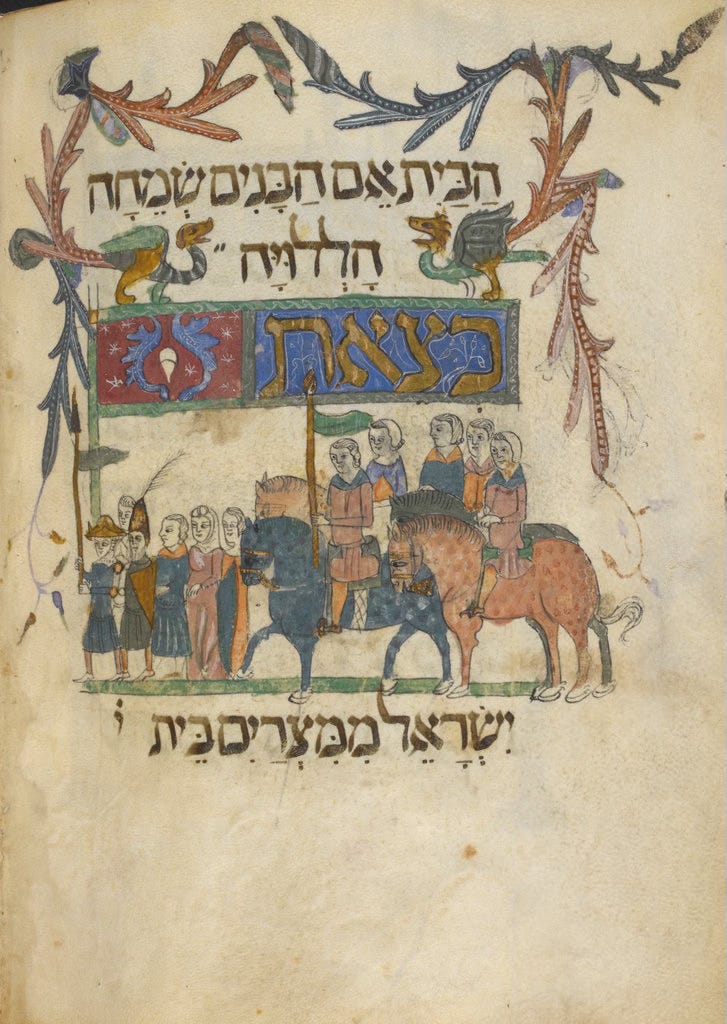 הַבַּיִת אֵם הַבָּנִים שְׂמֵחָה
הַלְלוּיָהּ ״
בְּצֵאת
יִשְׂרָאֵל מִמִּצְרַיִם בֵּית י